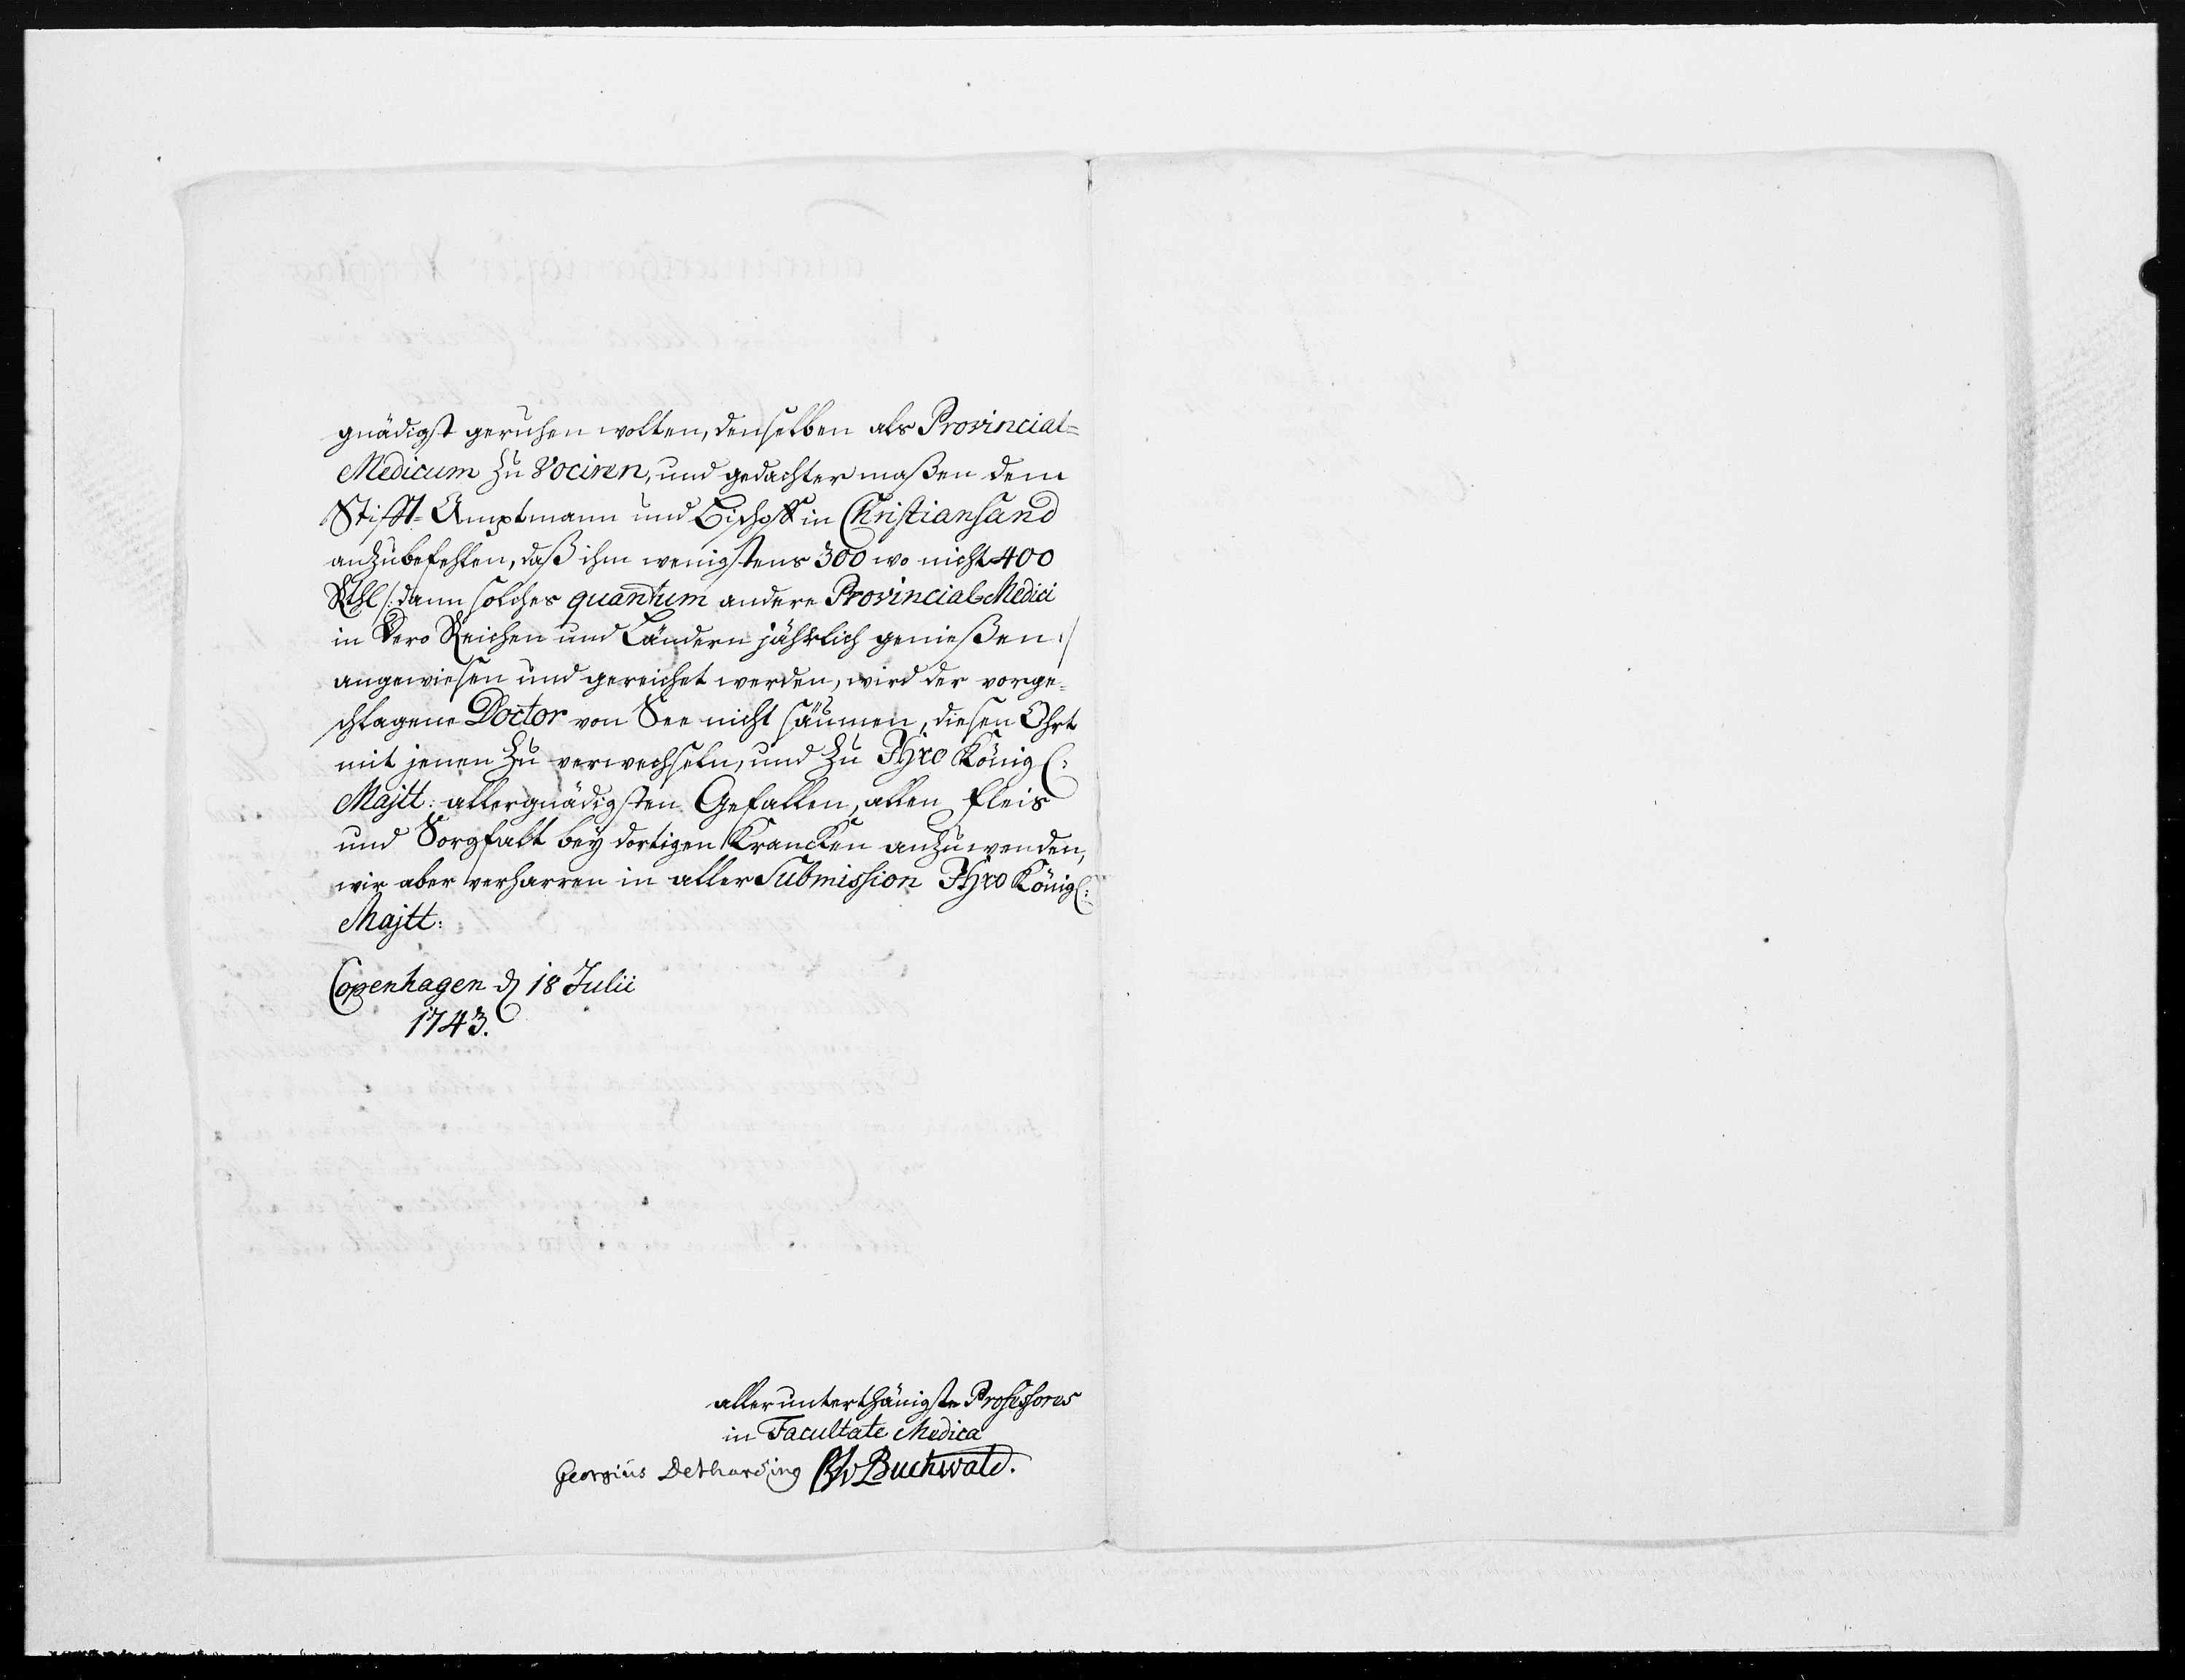 gnädigst geruhen wolten, denselben als Provincial=
Medicum zu vociren, und gedachter maßen dem
Stifft=Amptmann und Bischoff in Christiansand
anzubefehlen, daß ihm wenigstens 300 wo nicht 400
Rthl /: dann solches quantum andere Provincial Medici
in Dero Reichen und Ländern jährlich genießen :/
angewiesen und gereichet werden, wird der vorge=
schlagene Doctor von See nicht säumen, diesen Ohrt
mit jenen zu verwechseln, und zu Ihro Königl:
Majtt: allergnädigsten Gefallen, allen Fleis
und Sorgfalt bey dortigen Krancken anzuwenden,
wir aber verharren in aller Submission Ihro Königl:
Majtt:
Copenhagen d 18 Julii
1743.
allerunterthänigste Professores
in Facultate Medica
Georgius Detharding BJv Buchwald.